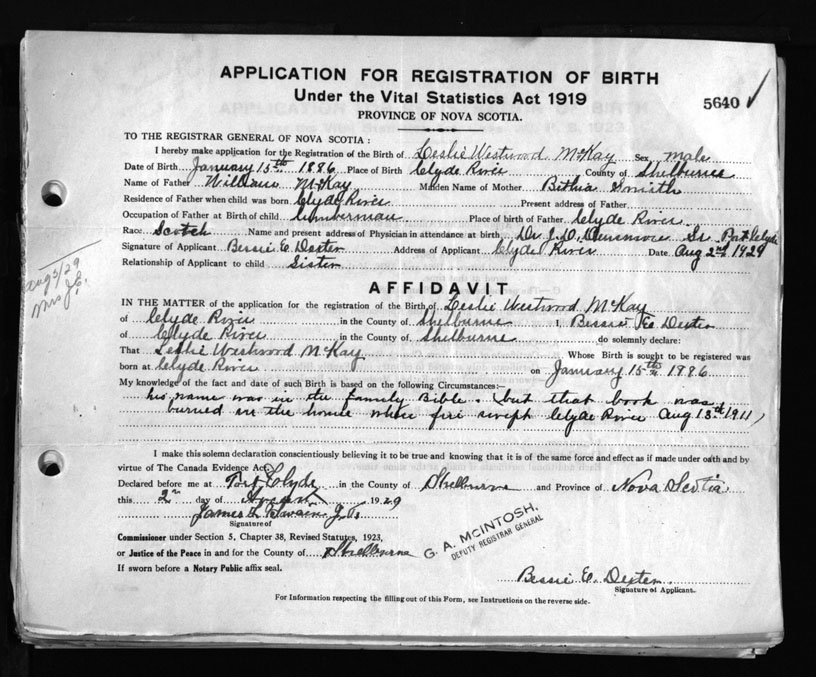 APPLICATION FOR REGISTRATION OF BIRTH
Under the Vital Statistics Act 1919
PROVINCE OF NOVA SCOTIA.
5640
TO THE REGISTRAR GENERAL OF NOVA SCOTIA:
I hereby make application for the Registration of the Birth of Leslie Westwood McKay Sex male
Date of Birth January 15th 1886 Place of Birth Clyde River County of Shelburne
Name of Father William McKay Maiden Name of Mother Bithia Smith
Residence of Father when child was born Clyde River Present address of Father
Occupation of Father at Birth of child Lumberman Place of birth of Father Clyde River
Race Scotch Name and present address of Physician in attendance at birth Dr. J. O. Sr Port Clyde
Signature of Applicant Bessie E. Dexter Address of Applicant Clyde River Date Aug 2nd 1929
Relationship of Applicant to child Sister
Aug 3/29
AFFIDAVIT
IN THE MATTER of the application for the registration of the Birth of Leslie Westwood McKay
of Clyde River in the County of Shelburne I, Bessie Dexter
of Clyde River in the County of Shelburne do solemnly declare:
That Leslie Westwood McKay Whose Birth is sought to be registered was
born at Clyde River on January 15th 1886
My knowledge of the fact and date of such Birth is based on the following Circumstances:—
his name was in the family Bible. (but that book was
burned in the house when fire swept Clyde River Aug 13th 1911)
I make this solemn declaration conscientiously believing it to be true and knowing that it is of the same force and effect as if made under oath and by
virtue of The Canada Evidence Act.
Declared before me at Port Clyde in the County of Shelburne and Province of Nova Scotia
this 2n day of August 1929
James L. J.P.
Signature of
Commissioner under Section 5, Chapter 38, Revised Statutes, 1923,
or Justice of the Peace in and for the County of Shelburne
If sworn before a Notary Public affix seal.
G. A. MCINTOSH,
DEPUTY REGISTRAR GENERAL
Bessie E. Dexter
Signature of Applicant.
For Information respecting the filling out of this Form, see Instructions on the reverse side.